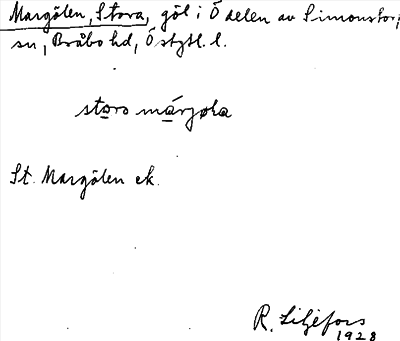 Margölen, Stora, göl i Ö delen av Simonstorps
sn, Bråbo hd, Östgtl. l.
storo márjola
St. Margölen ek.
R. Liljefors
1928